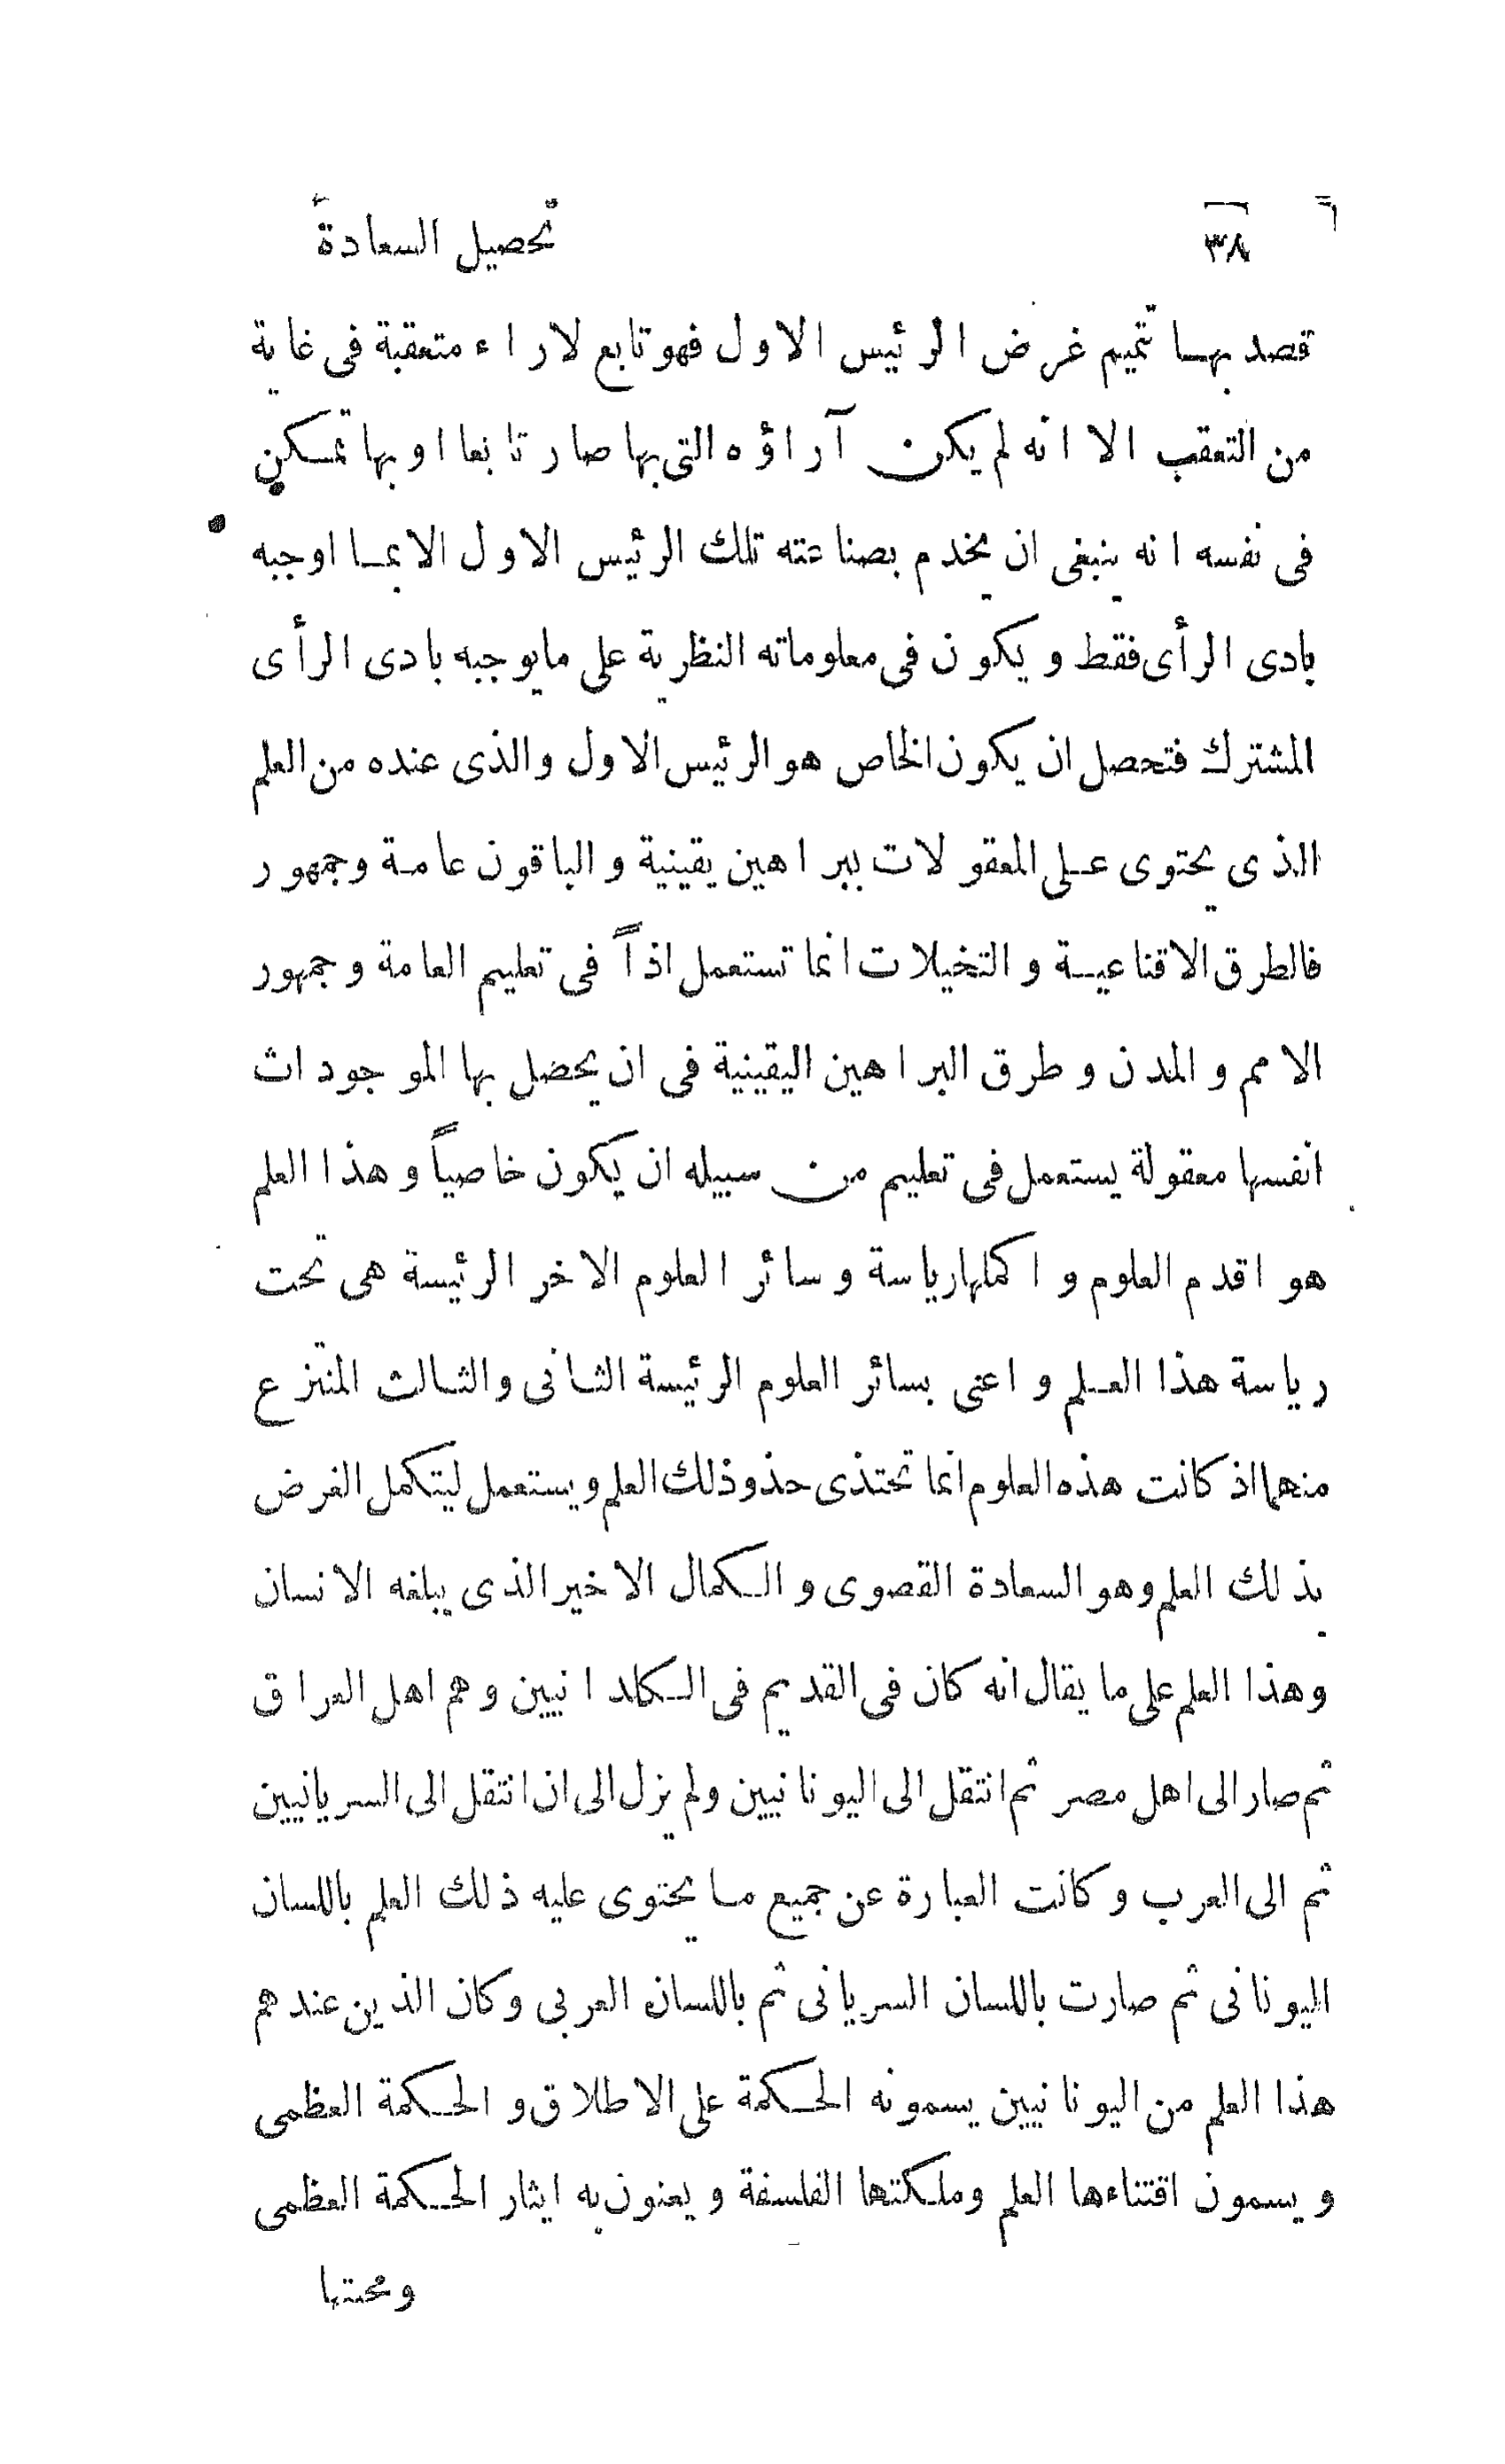 ٣٨ تحصيل السعادة
قصد بها تتميم غرض الرئيس الاول فهو تابع لاراء متعقبة فى غاية
من التعقب الا انه لم يكن آراؤه التى بها صار تابعا او بها تمكن
فى نفسه انه ينبغى ان يخدم بصناعته تلك الرئيس الاول الا بما اوجبه
بادى الرأى فقط ويكون فى معلوماته النظرية على مايوجبه بادى الرأى
المشترك فتحصل ان يكون الخاص هو الرئيس الاول والذى عنده من العلم
الذى يحتوى على المعقولات ببراهين يقينية والباقون عامة وجمهور
فالطرق الاقناعية والتخيلات انما تستعمل اذاً فى تعليم العامة وجمهور
الامم والمدن وطرق البراهين اليقينية فى ان يحضل بها الموجودات
انفسها معقولة يستعمل فى تعليم من سبيله ان يكون خاصياً وهذا العلم
هو اقدم العلوم واكملها رياسة وسائر العلوم الاخر الرئيسة هى تحت
رياسة هذا العلم واعنى بسائر العلوم الرئيسة الثانى والثالث المنتزع
منهما اذ كانت هذه العلوم انما تحتذى حذو ذلك العلم ويستعمل ليتكمل الغرض
بذلك العلم وهو السعادة القصوى والكمال الاخير الذى يبلغه الانسان
وهذا العلم على ما يقال انه كان فى القديم فى الكلدانيين وهم اهل العراق
ثم صار الى اهل مصر ثم انتقل الى اليونانيين ولم يزل الى ان انتقل الى السريانيين
ثم الى العرب وكانت العبارة عن جميع ما يحتوى عليه ذلك العلم باللسان
اليونانى ثم صارت باللسان السريانى ثم باللسان العربى وكان الذين عندهم
هذا العلم من اليونانيين يسمونه الحكمة على الاطلاق والحكمة العظمى
ويسمون اقتناءها العلم وملكتها الفلسفة ويعنون به ايثار الحكمة العظمى
ومحبتها